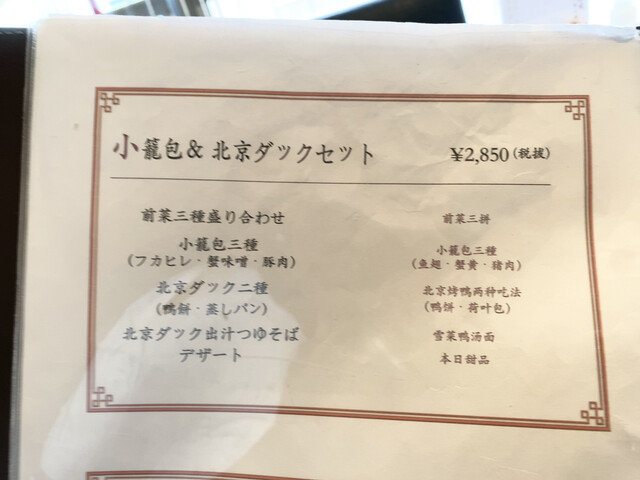 小籠包& 北京ダックセット ¥2,850(税抜)
前菜三種盛り合わせ
小籠包三種
(フカヒレ・蟹味噌・豚肉)
北京ダック二種
(鴨餅・蒸しパン)
北京ダック出汁つゆそば
デザート
前菜三拼
小籠包三種
(魚翅・蟹黄・猪肉)
北京烤鸭两种吃法
(鸭饼・荷叶包)
雪菜鸭汤面
本日甜品